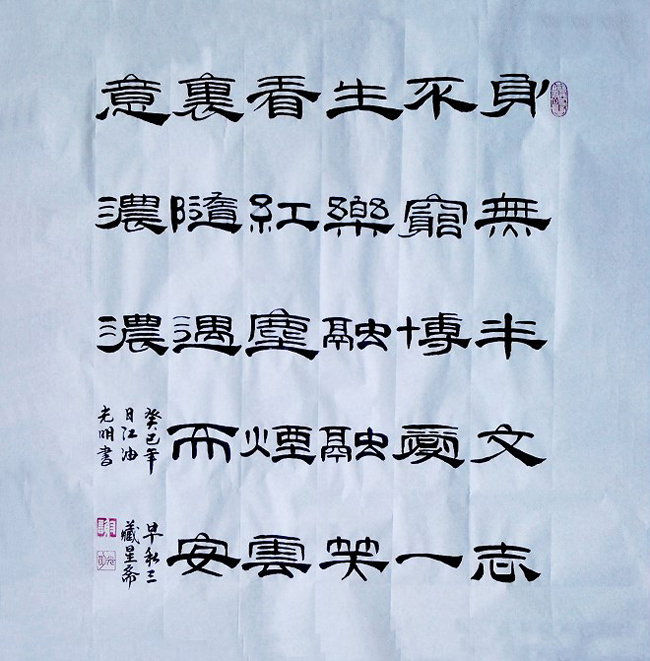 身無半文志
不窮博愛一
生樂融融笑
看紅塵煙雲
裏隨遇而安
意濃濃
癸巳年早秋三
日江油藏星斋
光明書